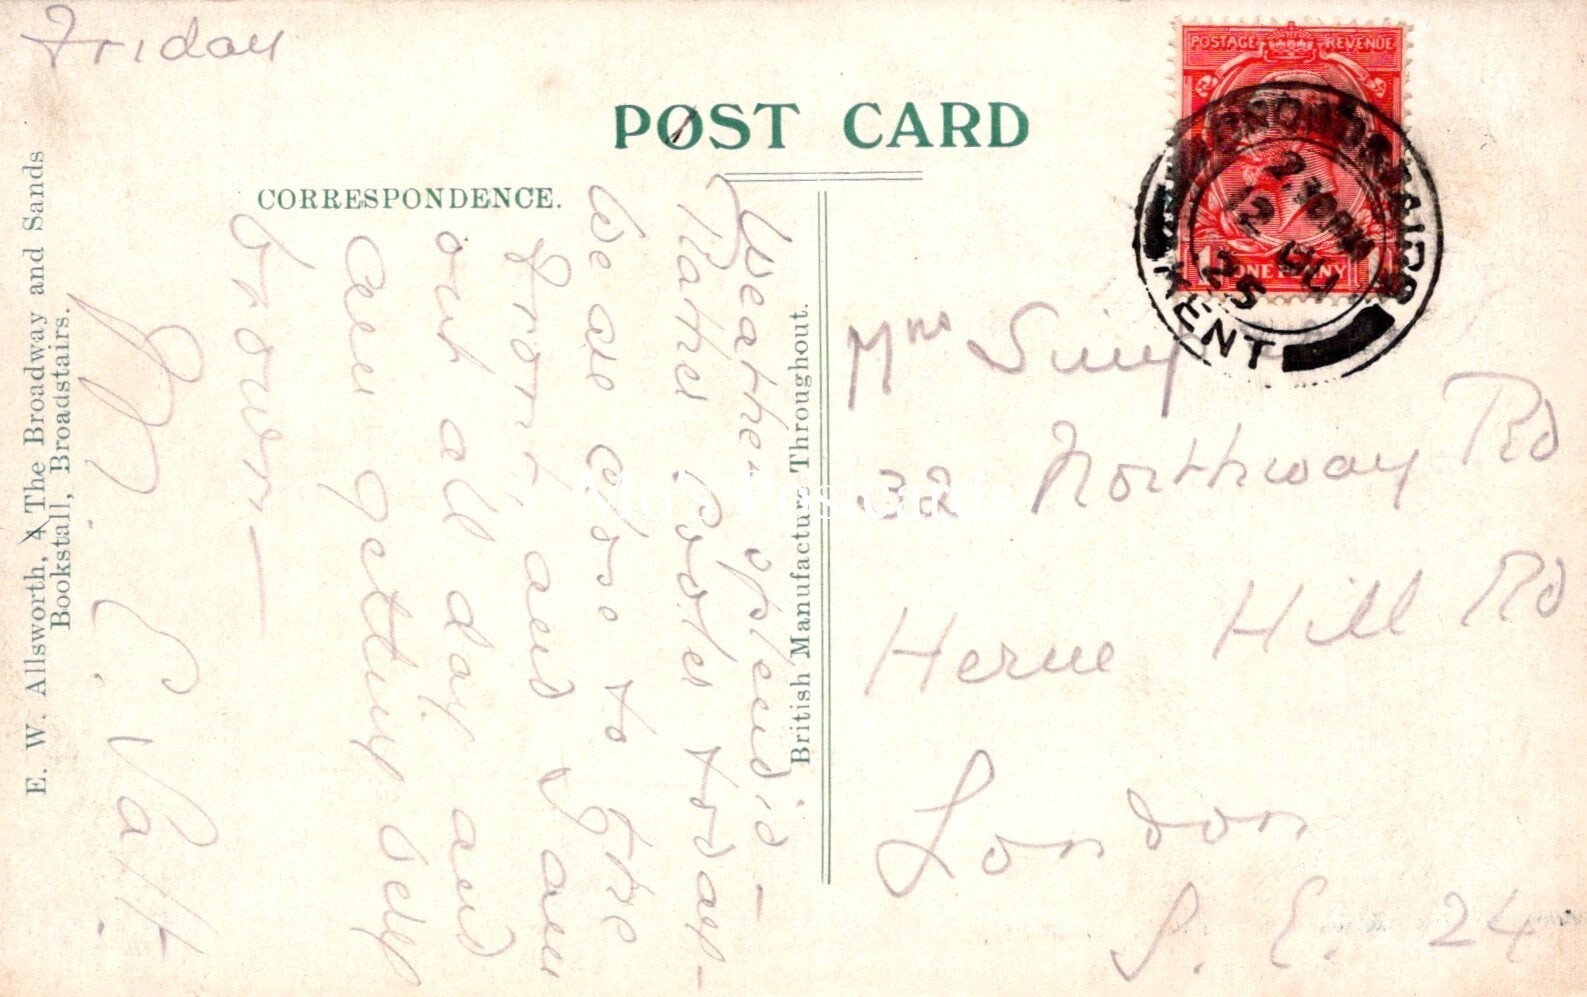 Friday
POST CARD
CORRESPONDENCE.
POSTAGE REVENUE
ONE PENNY
BROADSTAIRS
2.30 PM
12 JU
25
KENT
E. W. Allsworth, 4 The Broadway and Sands
Bookstall, Broadstairs.
British Manufacture Throughout.
Weather splendid –
Rather cooler today –
We are close to the
front, and I am
out all day and
am getting very
brown –
M. E. Patt.
Mrs
32 Northway Rd
Herne Hill Rd
London
S. E. 24
Mo's Postcards